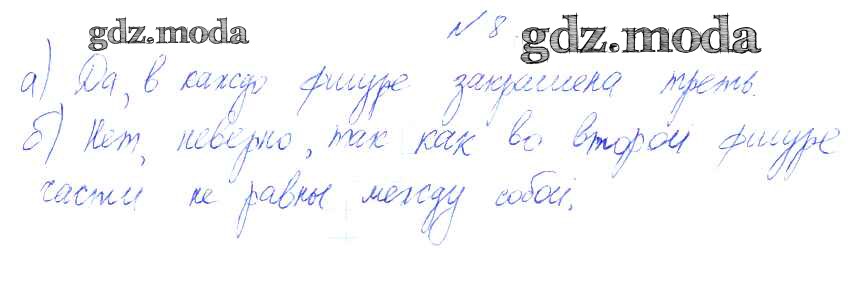 gdz.moda № 8. gdz.moda
а) Да, в каждо фигуре закрашена треть.
б) Нет, неверно, так как во второй фигуре
части не равны между собой.